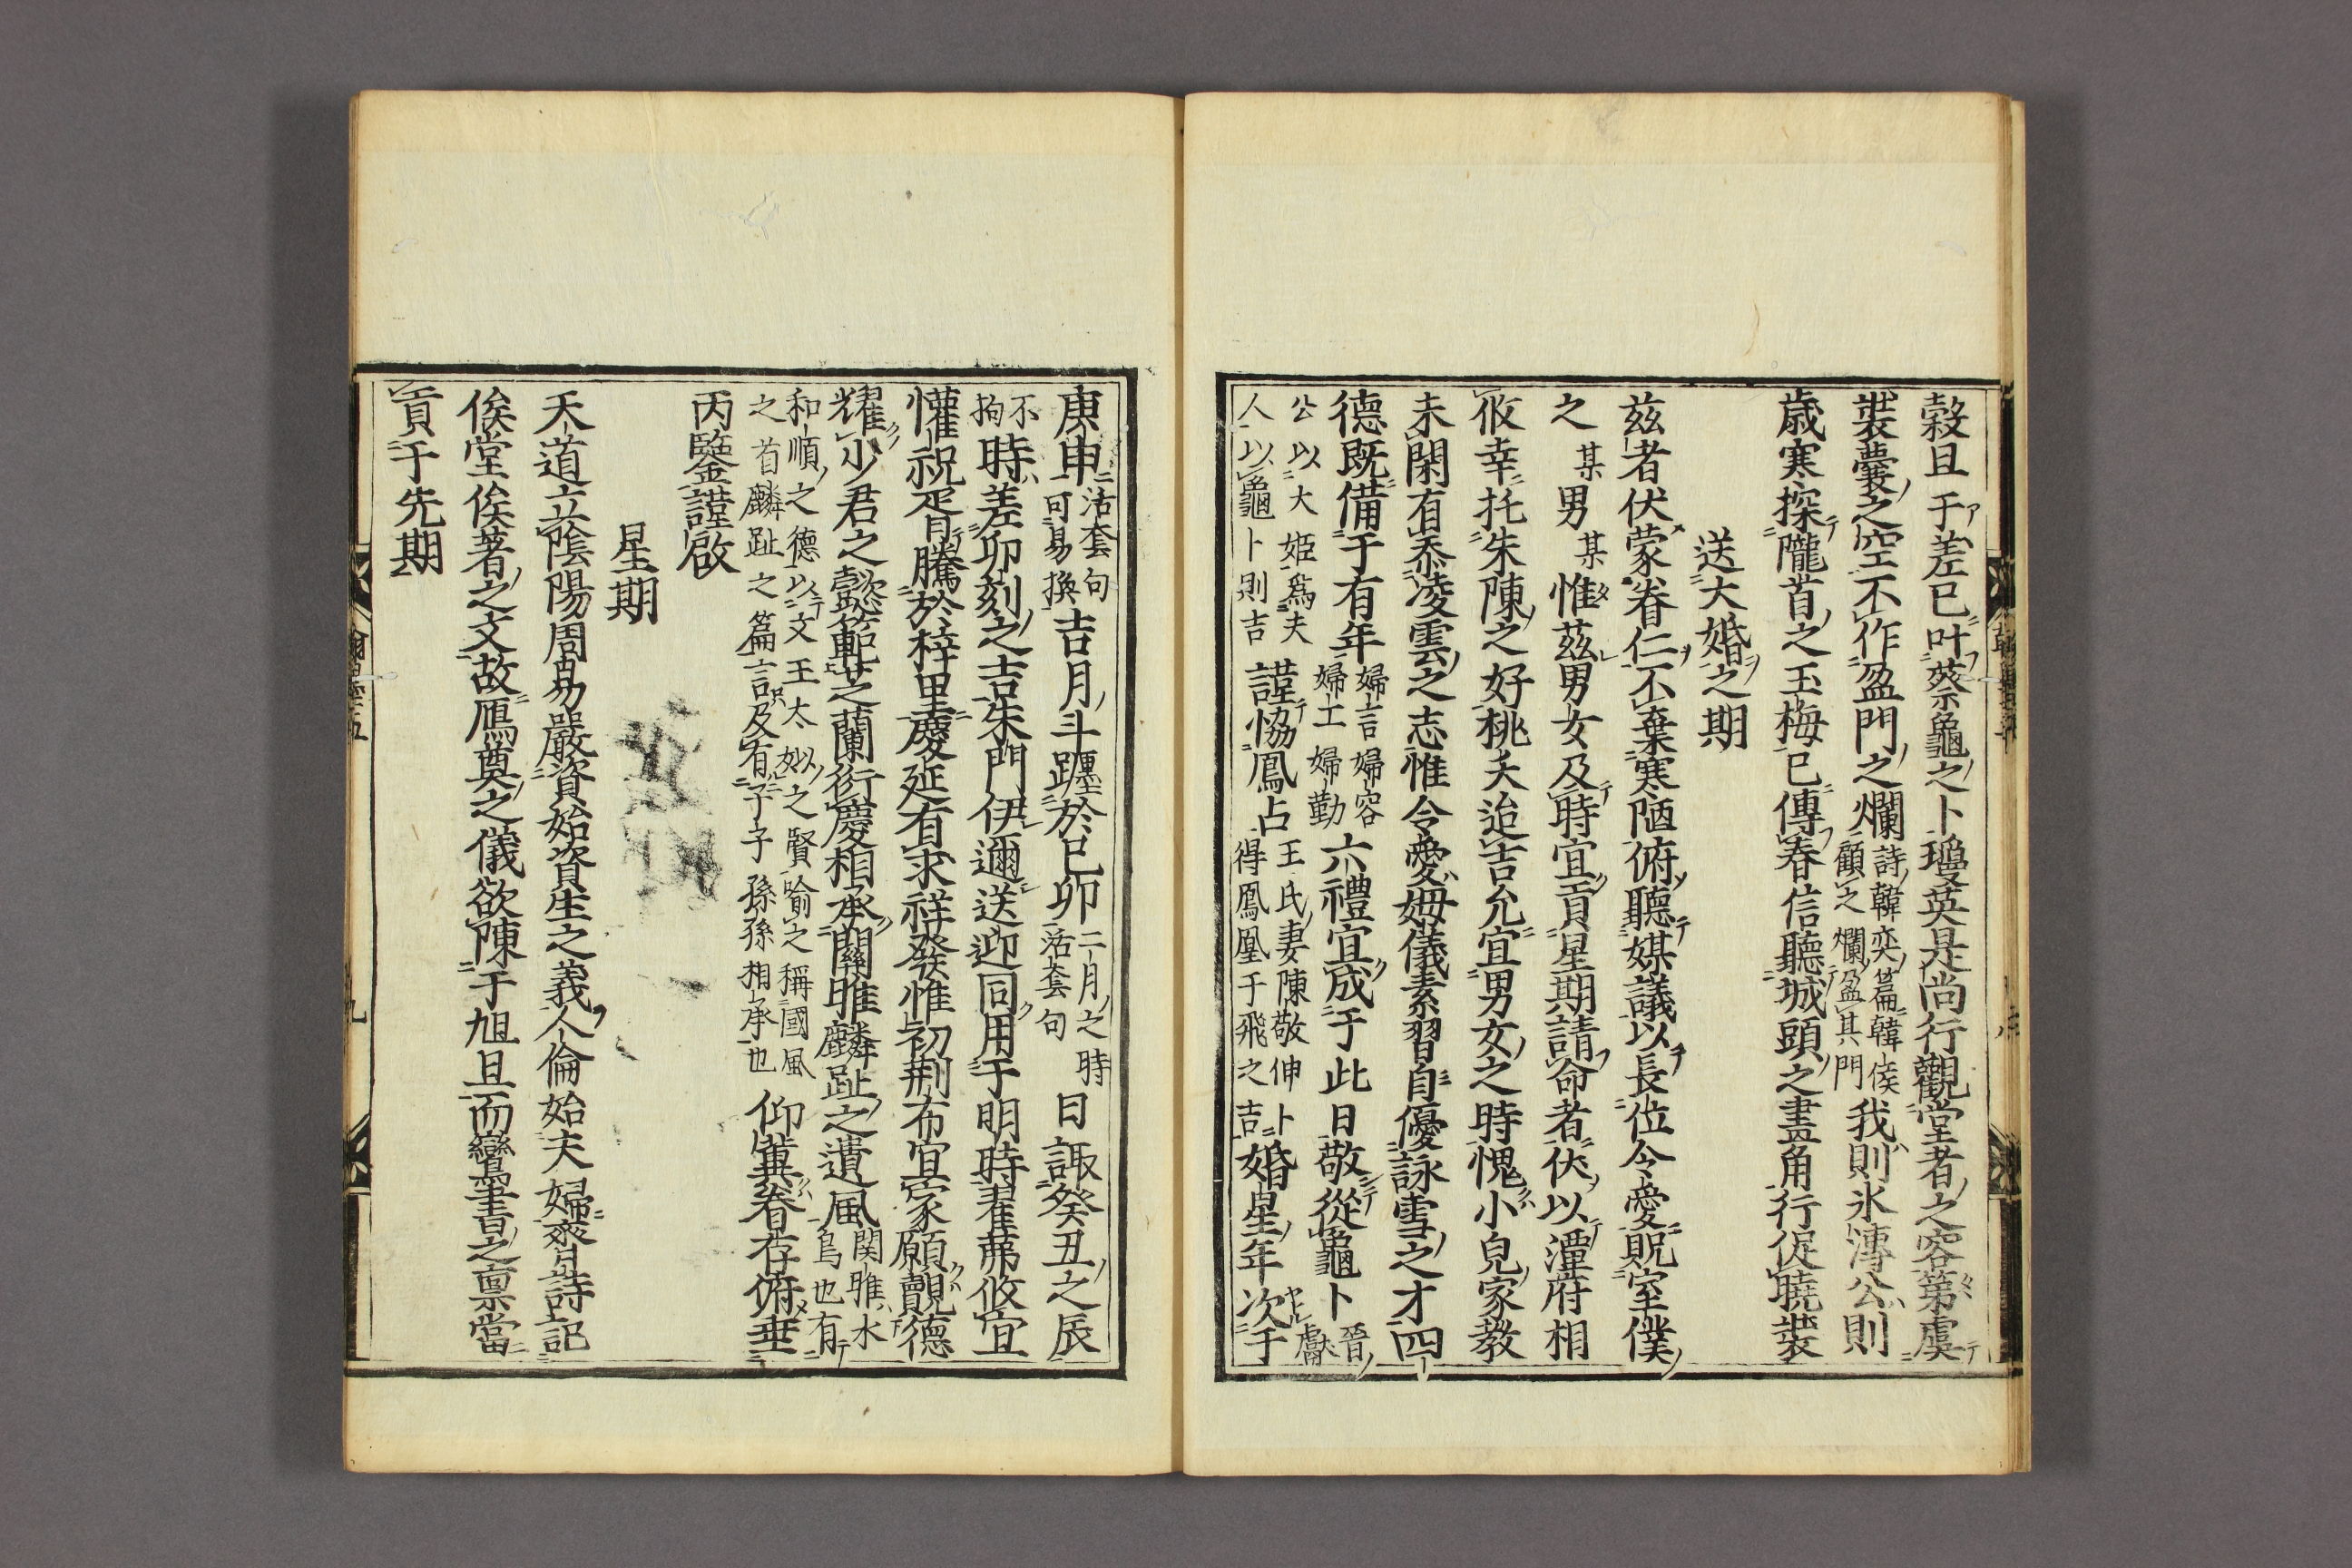 穀旦于差已叶蔡龜之卜瓊英是尚行觀堂者之容第虞
裝囊之空不作盈門之爛詩韓奕篇韓侯顧之爛盈其門我則氷漙公則
歳寒探隴首之玉梅已傳春信聽城頭之畫角行促曉裝
送大婚之期
茲者伏蒙眷仁不棄寒陋俯聽媒議以長位令愛貺室僕
之某男某惟茲男女及時宜貢星期請命者伏以潭府相
攸幸托朱陳之好桃夭迨吉允宜男女之時愧小兒家教
未閑有忝凌雲之志惟令愛姆儀素習自優詠雪之才四
德既備于有年婦言婦容婦工婦勤六禮宜成于此日敬從龜卜晉獻
公以大姬爲夫人以龜卜則吉謹恊鳳占王氏妻陳敬仲卜得鳳凰于飛之吉婚星年次于
庚申活套句可易換吉月斗躔於巳卯二月之時活套句日諏癸丑之辰
不拘時差卯刻之吉朱門伊邇送迎同用于明時翟茀攸宜
懽祝疋騰於梓里慶延有永祥發惟初荆布宜家願覿德
耀少君之懿範芝蘭衍慶相承關雎麟趾之遺風関雎水鳥也有
和順之德以文王太姒之賢喻之稱國風之首麟趾之篇言及有子子孫孫相承也仰冀眷存俯垂
丙鑒謹啟
星期
天道立陰陽周易嚴資始資生之義人倫始夫婦齊詩記
俟堂俟著之文故鴈奠之儀欲陳于旭旦而鸞書之禀當
貢于先期